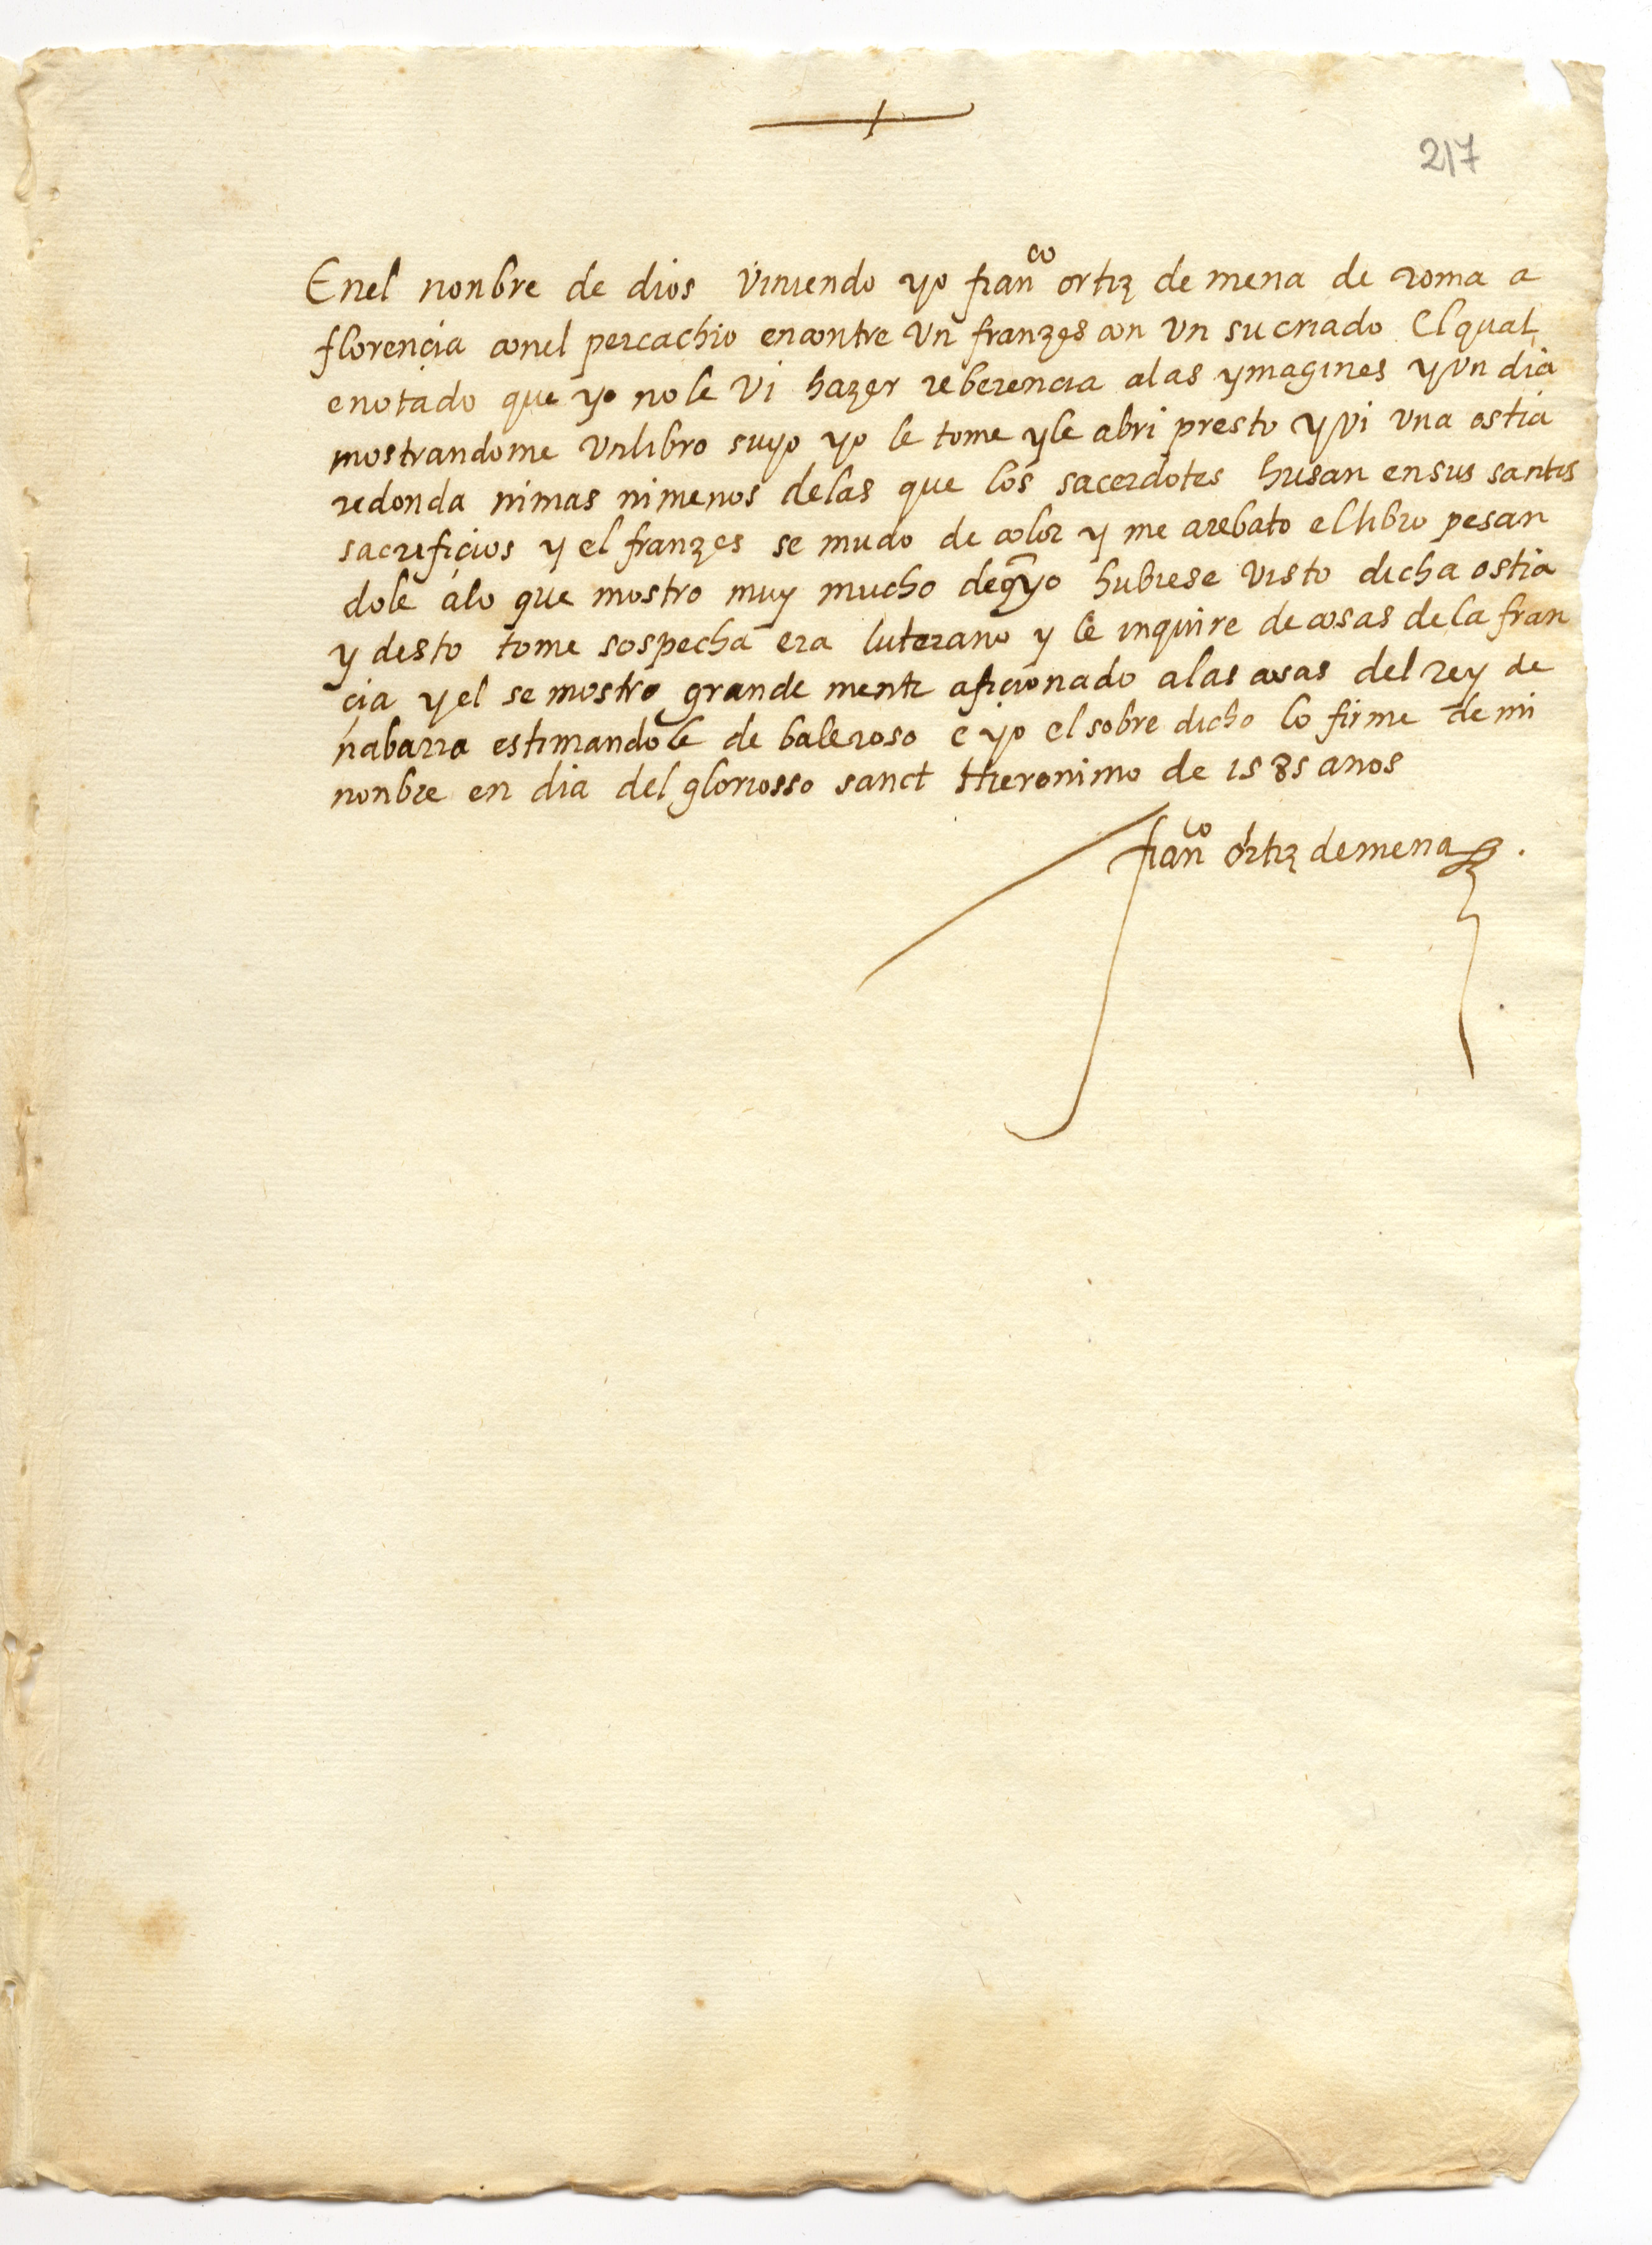 217
Enel nonbre de dios viniendo yo fran^co ortiz de mena de roma a
florencia conel percachio encontre vn franzes con vn su criado el qual
enotado que yo no le vi hazer reberencia alas ymagines y vn dia
mostrandome vnlibro suyo yo le tome yle abri presto y vi vna ostia
redonda nimas nimenos delas que los sacerdotes husan ensus santos
sacrificios y el franzes se mudo de color y me arebato el libro pesan
dole alo que mostro muy mucho deq̃ yo hubiese visto dicha ostia
y desto tome sospecha era luterano y le inquire de cosas dela fran
cia y el se mostro grande mente aficionado alas cosas del rey de
nabarra estimandole de baleroso e yo el sobre dicho lo firme de mi
nonbre en dia del gloriosso sanct Hieronimo de 1585 anos
fran^co ortiz demena